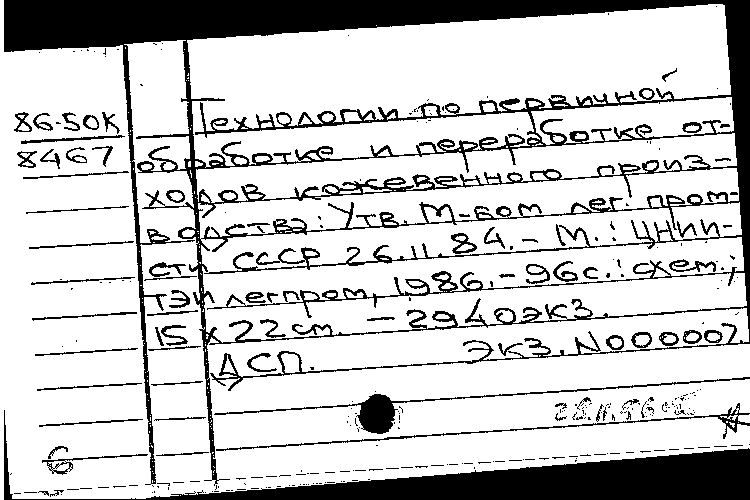 86-50К
8467
Технологии по первичной
обработке и переработке от-
ходов кожевенного произ-
водства: Утв. М-вом лег. пром-
сти СССР 26.11.84. - М.: ЦНИИ-
ТЭИлегпром, 1986. - 96с.: схем.;
15 х 22 см. - 2940экз.
ДСП. ЭКЗ. N000007.
6